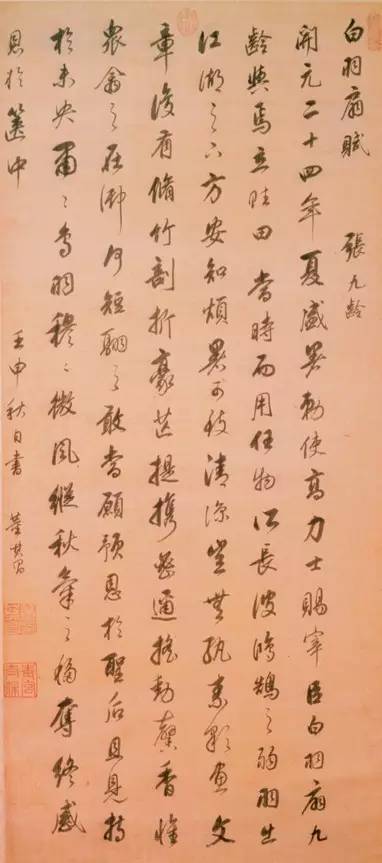 白羽扇賦 張九齡
開元二十四年夏盛暑勅使高力士賜宰臣白羽扇九
齡與焉立賦曰 當時而用任物所長彼鴻鵠之弱羽出
江湖之下方安知煩暑可致清涼豈無紈素彩畫文
章復有脩竹剖析豪芒提攜密邇搖動馨香惟
衆之在御何短翮之敢當恩於聖后且見持
於未央肅〻鳥羽穆〻微風縱秋氣之移奪終感
恩於篋中 壬申秋日書 董其昌